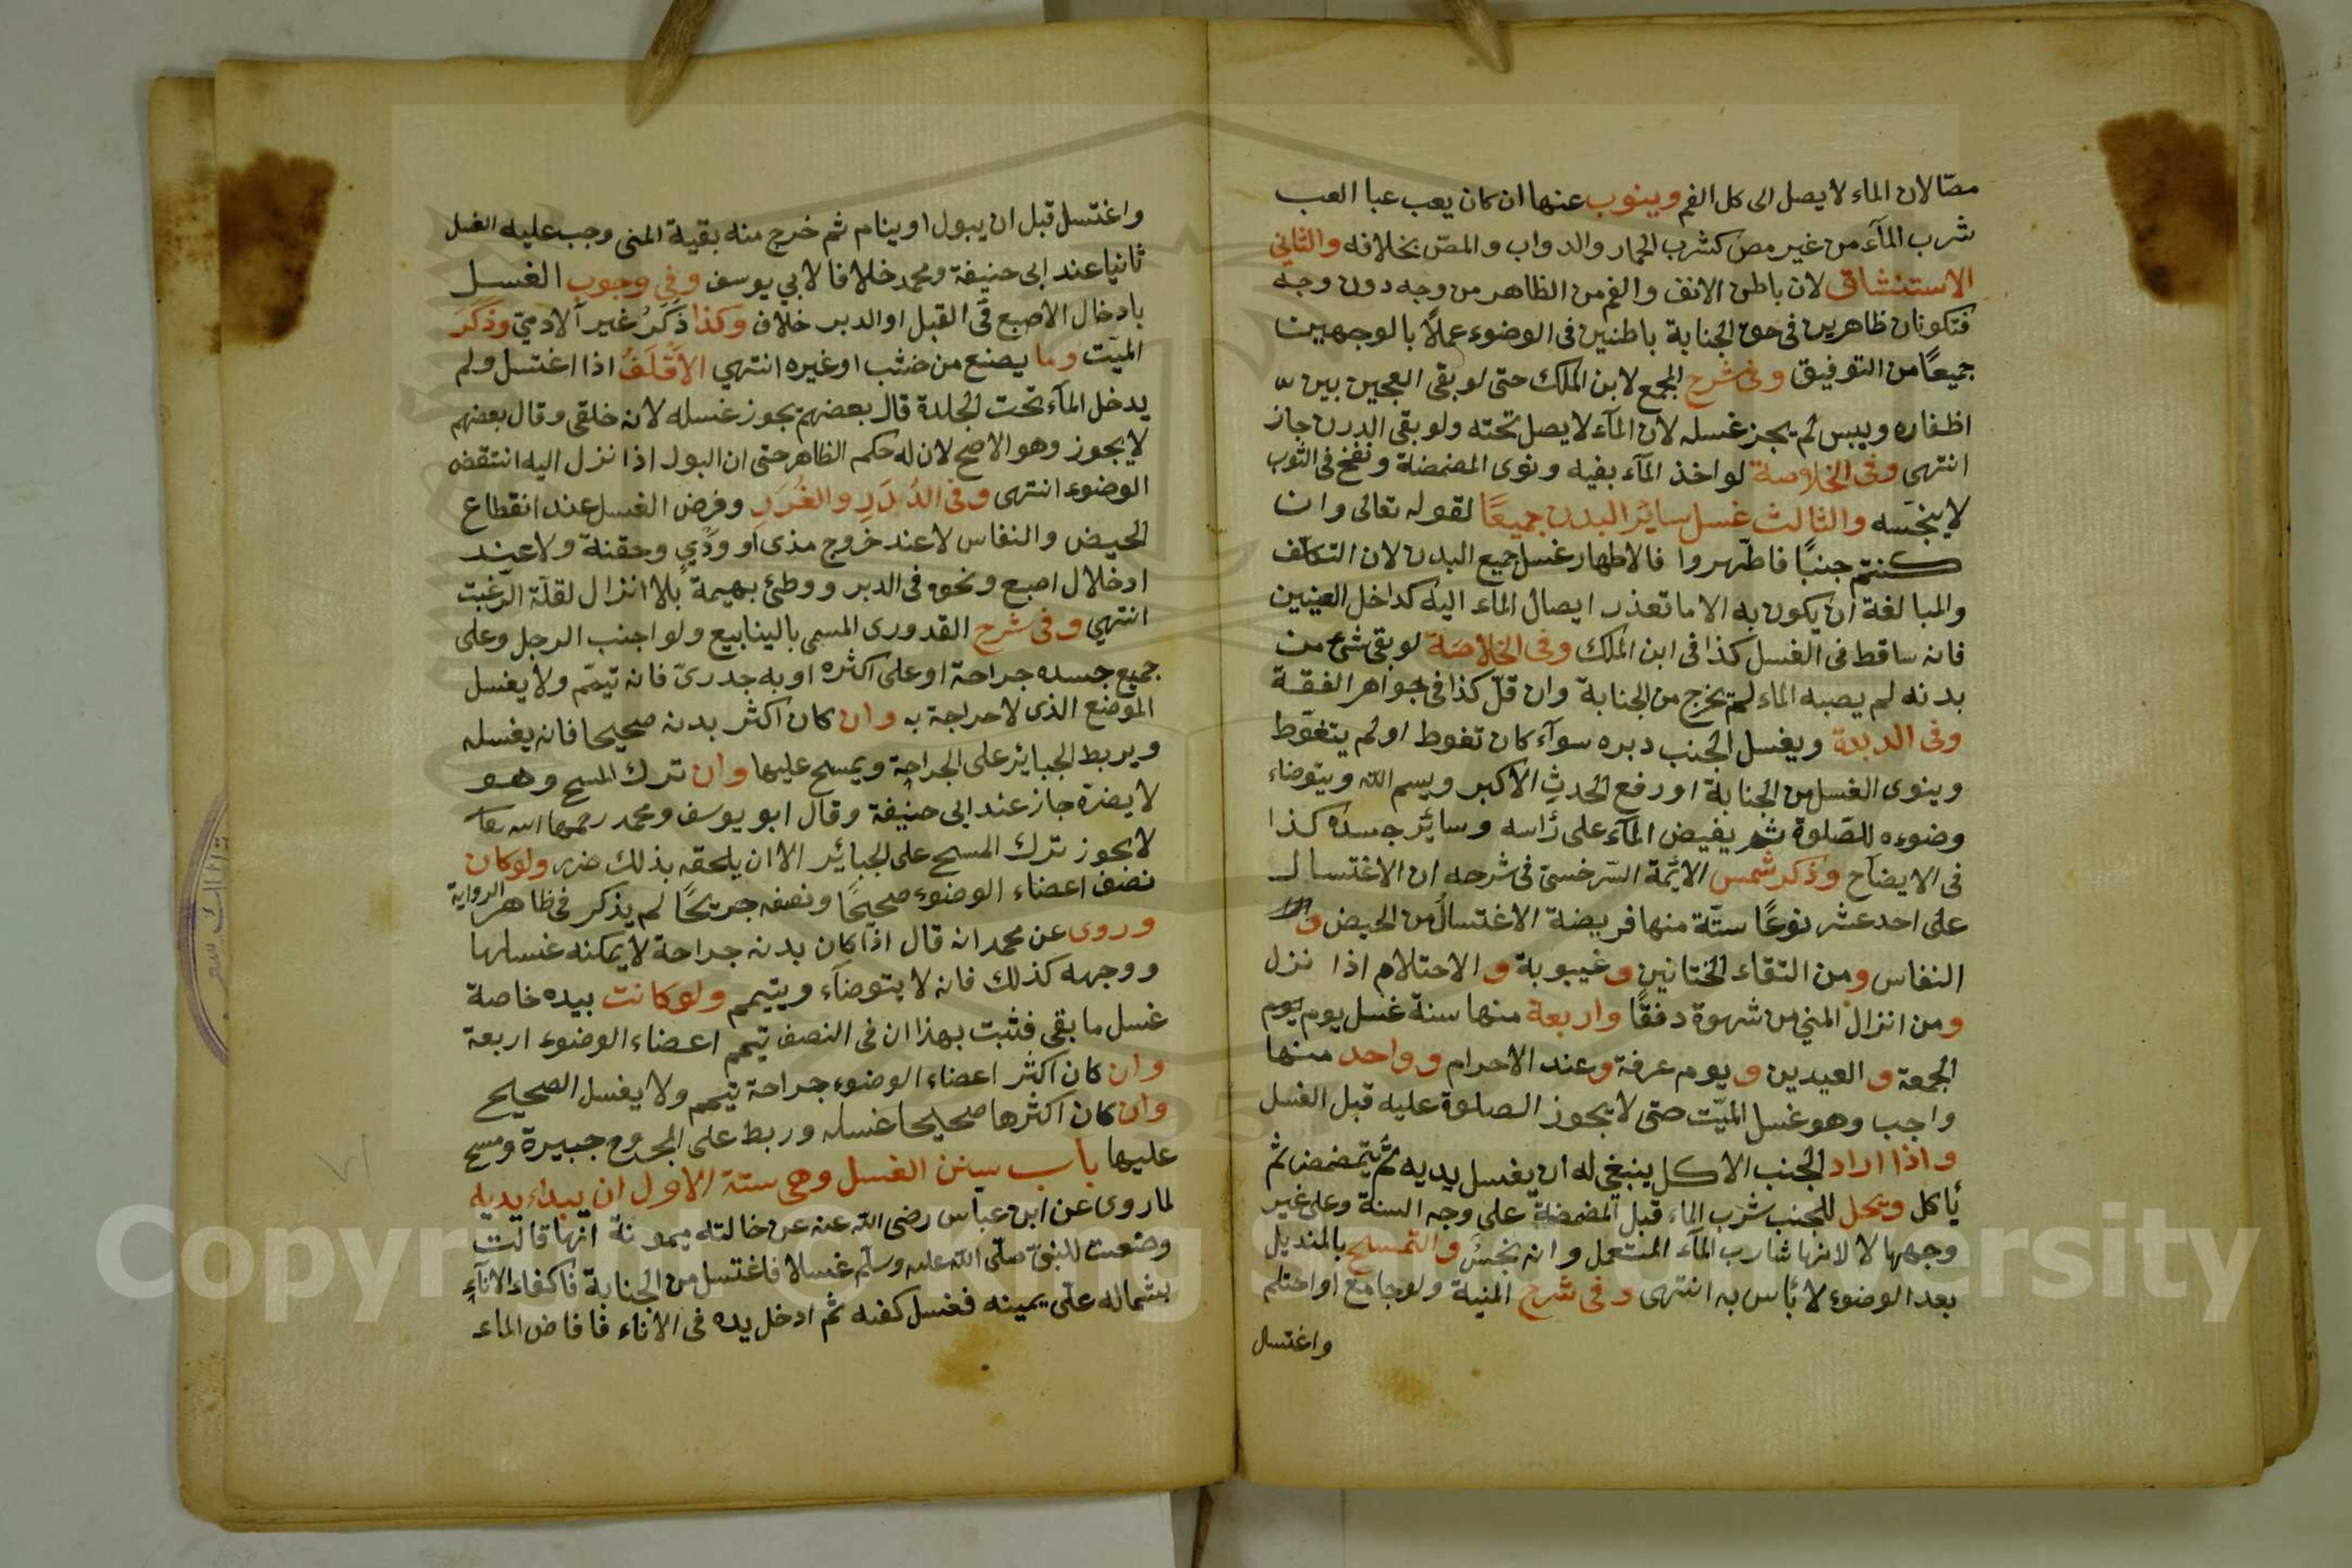 مصّا لان الماء لا يصل الى كل الفم وينوب عنها ان كان يعب عبا العب
شرب المآء من غير مص كشرب الحمار والدواب والمصّ بخلافه والثانى
الاستنشاق لان باطن الانف والفم من الظاهر من وجه دون وجه
فتكونان ظاهرين فى حق الجنابة باطنين فى الوضوء عملًا بالوجهين
جميعًا من التوفيق وفى شرح المجمع لابن الملك حتى لو بقى العجين بين
اظفاره ويبس لم يجز غسله لان المآء لا يصل تحته ولو بقى الدرن جاز
انتهى وفى الخلاصة لو اخذ المآء بفيه ونوى المضمضة ونفخ فى الثوب
لا ينجّسه والثالث غسل سائر البدن جميعًا لقوله تعالى وان
كنتم جنبًا فاطّهروا فالاطهار غسل جميع البدن لان التكلف
والمبالغة ان يكون به الا ما تعذر ايصال الماء اليه كداخل العينين
فانه ساقط فى الغسل كذا فى ابن الملك وفى الخلاصة لو بقى شئ من
بدنه لم يصبه الماء لم يخرج من الجنابة وان قلّ كذا فى جواهر الفقة
وفى ويغسل الجنب دبره سوآء كان تغوط او لم يتغوّط
وينوى الغسل من الجنابة او رفع الحدث الاكبر ويسم الله ويتوضاء
وضوءه للصّلوة ثم يفيض المآء على رأسه وسائر جسده كذا
فى الايضاح وذكر شمس الائمّة السّرخسىّ فى شرحه ان الاغتسال
على احد عشر نوعًا ستّة منها فريضة الاغتسال من الحيض و
النفاس ومن التقاء الختانين وغيبوبة والاحتلام اذا نزل
ومن انزال المني من شهوة دفقًا واربعة منها سنة غسل يوم يوم
الجمعة والعيدين ويوم عرفة وعند الاحرام وواحد منها
واجب وهو غسل الميّت حتى لا يجوز الصلوة عليه قبل الغسل
واذا اراد الجنب الاكل ينبغى له ان يغسل يديه ثم يتمضمض ثم
يأكل ويحل للجنب شرب الماء قبل المضمضة على وجه السنة وعلى غير
وجهها لا لانها شارب المآء المستعمل وانه نجسٌ والتمسح بالمنديل
بعد الوضوء لا بأس به انتهى وفى شرح المنية ولو جامع او احتلم
واغتسل
واغتسل قبل ان يبول او ينام ثم خرج منه بقية المنى وجب عليه الغسل
ثانيا عند ابى حنيفة ومحمد خلافا لابي يوسف وفي وجوب الغسل
بادخال الاصبع فى القبل او الدبر خلاف وكذا ذَكَرُ غير الادميّ وذَكَرَ
الميّت وما يصنع من خشب او غيره انتهي الاَقْلَفُ اذا اغتسل ولم
يدخل المآء تحت الجلدة قال بعضهم يجوز غسله لانه خلقى وقال بعضهم
لا يجوز وهو الاصح لان له حكم الظاهر حتى ان البول اذا نزل اليه انتقض
الوضوء انتهى وفى الدُرَرِ والغُرَرِ وفرض الغسل عند انقطاع
الحيض والنفاس لا عند خروج مذى او ودي وحقنة ولا عند
ادخلال اصبع ونحوه فى الدبر ووطئ بهيمة بلا انزال لقلّة الرّغبت
انتهي وفى شرح القدورى المسمى بالينابيع ولو اجنب الرجل وعلى
جميع جسده جراحة او على اكثره او به جدرىّ فانه تيمّم ولا يغسل
الموضع الذى لا جراحة به وان كان اكثر بدنه صحيحا فانه يغسله
ويربط الجبائر على الجراحة ويمسح عليها وان ترك المسح وهو
لا يضرّه جاز عند ابى حنيفة وقال ابو يوسف ومحمد رحمهما الله تعا
لا يجوز ترك المسح على الجبائر الا ان يلحقه بذلك ضرر ولو كان
نصف اعضاء الوضوء صحيحًا ونصفه جريحًا لم يذكر فى ظاهر الرواية
وروى عن محمد انه قال اذا كان بدنه جراحة لا يمكنه غسلها
ووجهه كذلك فانه لا يتوضآء ويتيمم ولو كانت بيده خاصة
غسل ما بقى فثبت بهذا ان فى النصف تيمم اعضاء الوضوء اربعة
وان كان اكثر اعضاء الوضوء جراحة تيمم ولا يغسل الصحيح
وان كان اكثرها صحيحا غسله وربط على المجروح جبيرة ومسح
عليها باب سنن الغسل وهى ستة الاول ان يبداء يديه
لما روى عن ابن عبّاس رضى الله عنه عن خالته ميمونة انها قالت
وضعت للنبىّ صلّى الله عليه وسلّم غسلا فاغتسل من الجنابة فاكفاء الانآء
بشماله على يمينه فغسل كفيه ثم ادخل يده فى الاناء فافاض الماء
Copyright © King Saud University